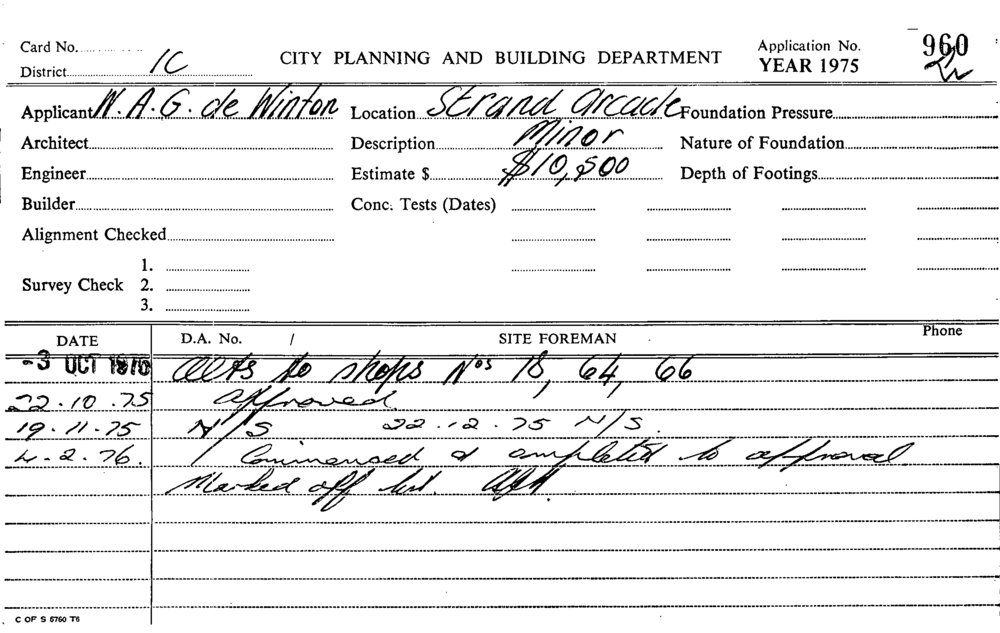 Card No.
District 1C
CITY PLANNING AND BUILDING DEPARTMENT
Application No. 960
YEAR 1975
Applicant W. A. G. de Winton Location Strand Arcade Foundation Pressure
Architect Description Minor Nature of Foundation
Engineer Estimate $ $10,500 Depth of Footings
Builder Conc. Tests (Dates)
Alignment Checked
Survey Check 1.
2.
3.
DATE D.A. No. / SITE FOREMAN Phone
-3 OCT 1975 Alts to shops Nos 18, 64, 66
22.10.75 approved
19.11.75 N/S 22.12.75 N/S.
4.2.76. Commenced & completed to approval
Marked off list.
C OF S 5760 T6